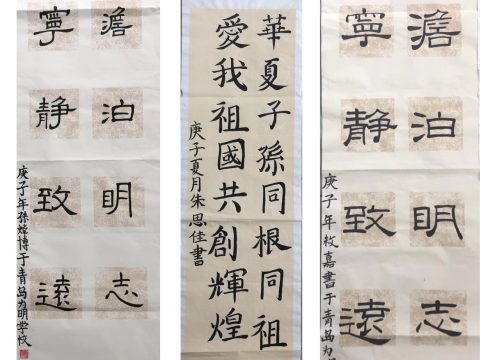 澹泊明志
寧靜致遠
庚子年孫煒博于青岛为明学校
華夏子孫同根同祖
愛我祖國共創輝煌
庚子夏月朱思佳書
澹泊明志
寧靜致遠
庚子年牧嘉書于青岛为